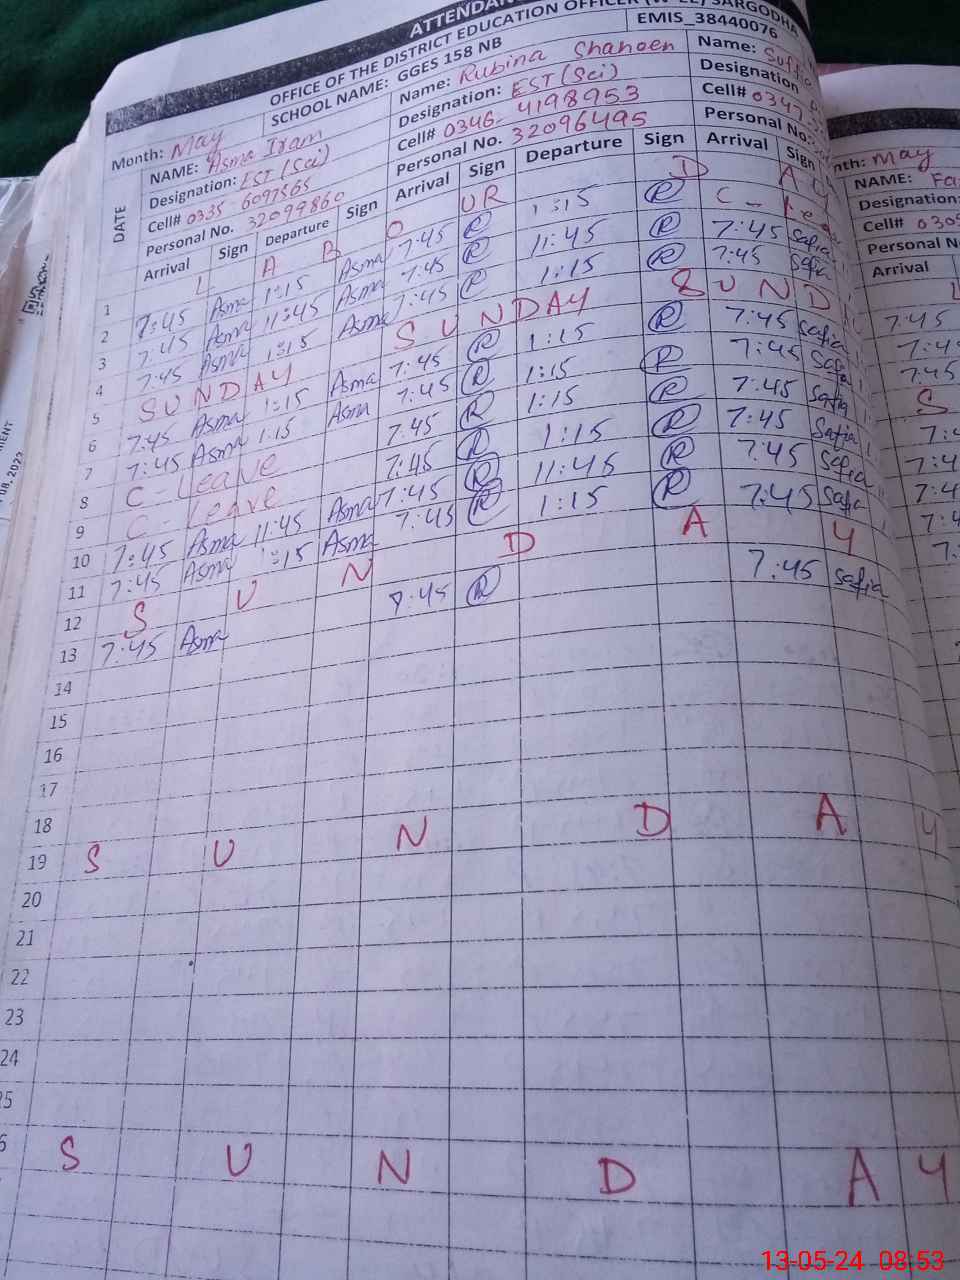 OFFICE OF THE DISTRICT EDUCATION OFFICER SARGODHA
SCHOOL NAME: GGES 158 NB EMIS_38440076
Month: May
NAME: Asma Iram Name: Rubina Shaheen Name:
Designation: EST (Sci) Designation: EST (Sci) Designation
Cell# 0335-6097565 Cell# 0346-4198953 Cell# 0347
Personal No. 32099860 Personal No. 32096495 Personal No.
DATE Arrival Sign Departure Sign Arrival Sign Departure Sign Arrival Sign
1 L A B O UR D A Y
2 7:45 Asma 1:15 Asma 7:45 R 1:15 R C-
3 7:45 Asma 11:45 Asma 7:45 R 11:45 R 7:45 Safia
4 7:45 Asma 1:15 Asma 7:45 R 1:15 R 7:45 Safia
5 SUNDAY SUNDAY SUND
6 7:45 Asma 1:15 Asma 7:45 R 1:15 R 7:45 Safia
7 7:45 Asma 1:15 Asma 7:45 R 1:15 R 7:45 Safia
8 C-Leave 7:45 R 1:15 R 7:45 Safia
9 C-Leave 7:45 R 1:15 R 7:45 Safia
10 7:45 Asma 11:45 Asma 7:45 R 11:45 R 7:45 Safia
11 7:45 Asma 1:15 Asma 7:45 R 1:15 R 7:45 Safia
12 S U N D A Y
13 7:45 Asma 7:45 R 7:45 Safia
14
15
16
17
18
19 S U N D A Y
20
21
22
23
24
25
26 S U N D A Y
nth: May
NAME:
Designation:
Cell# 030
Personal N
Arrival
7:45
7:45
S
13-05-24 08:53